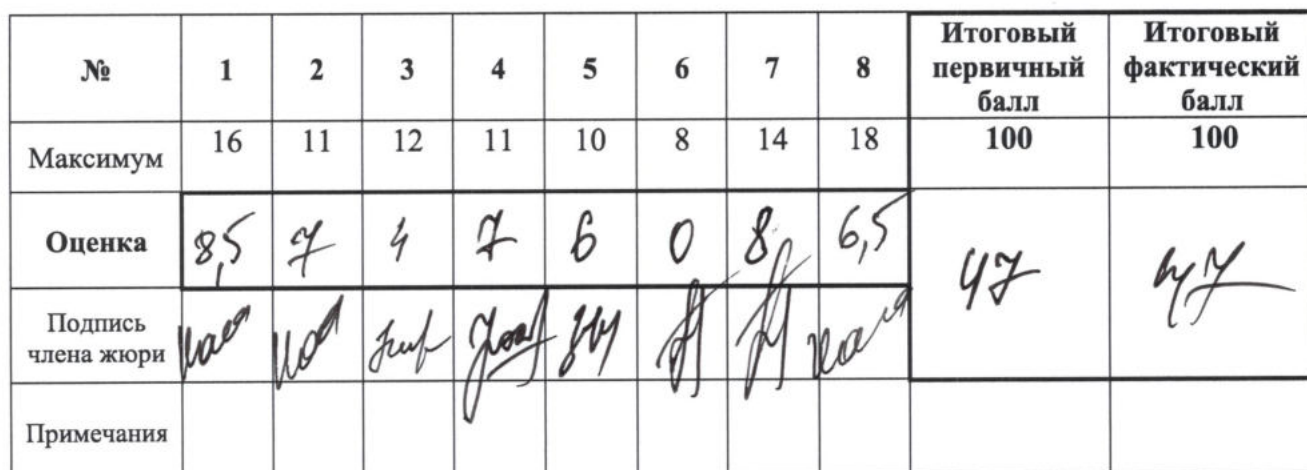 № 1 2 3 4 5 6 7 8 Итоговый первичный балл Итоговый фактический балл
Максимум 16 11 12 11 10 8 14 18 100 100
Оценка 8,5 7 4 7 6 0 8 6,5 47 47
Подпись члена жюри
Примечания